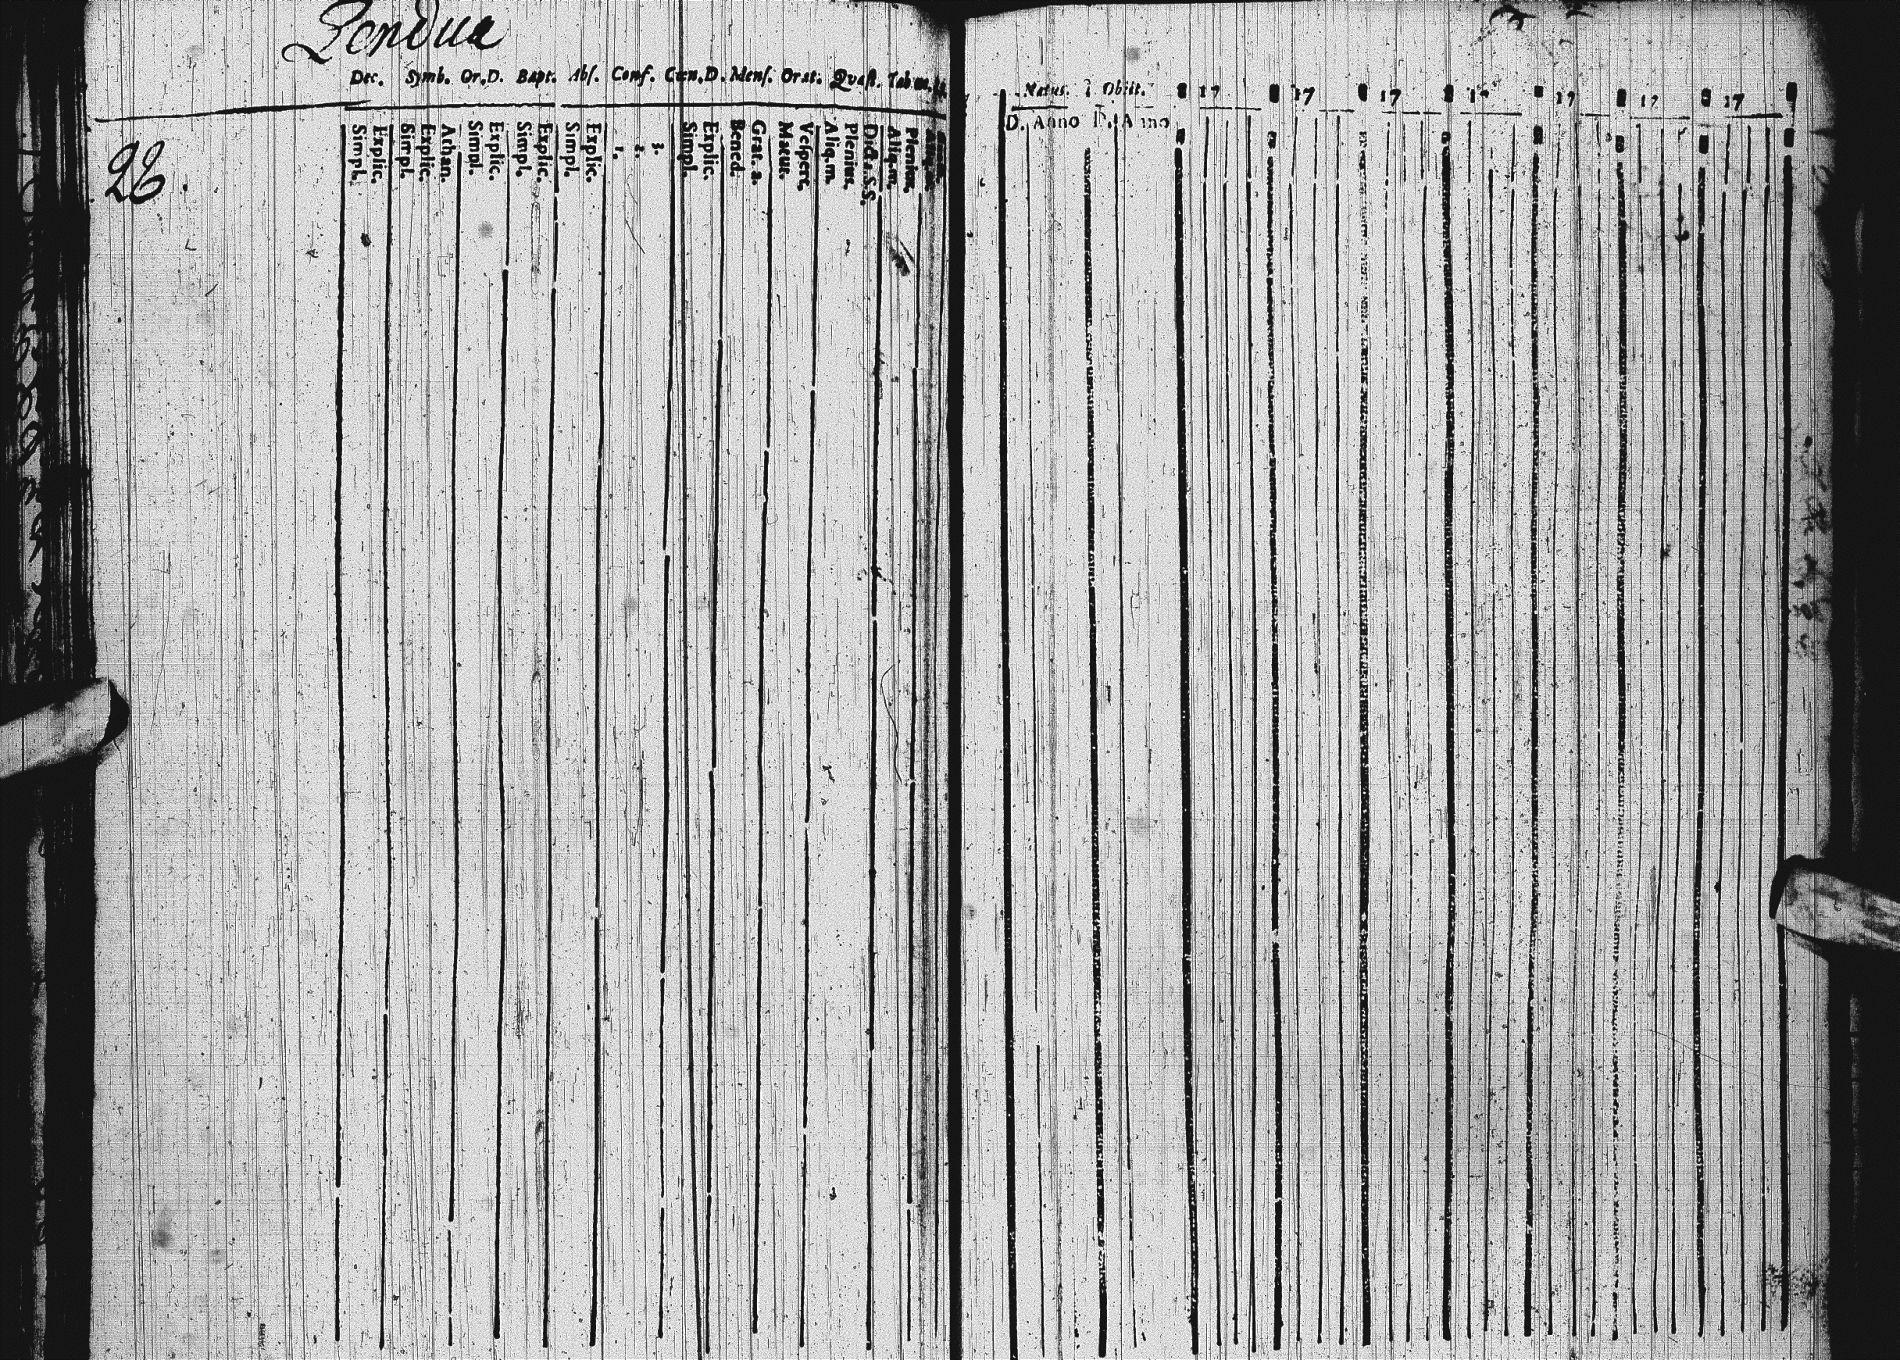 Dec. Symb. Or. D. Bapt. Abs. Conf. Cœn. D. Mens. Orat. Quæst.
Simpl. Explic. Simpl. Explic. Athan. Simpl. Explic. Simpl. Explic. Simpl. Explic. 1. 2. 3. Simpl. Explic. Bened. Grat. a. Matut. Vespert. Aliq. m. Plenius. Dicta. S.S. Aliq. m. Plenius.
26
Natus. Obiit. 17 17 17 17 17 17 17
D. Anno D. Anno